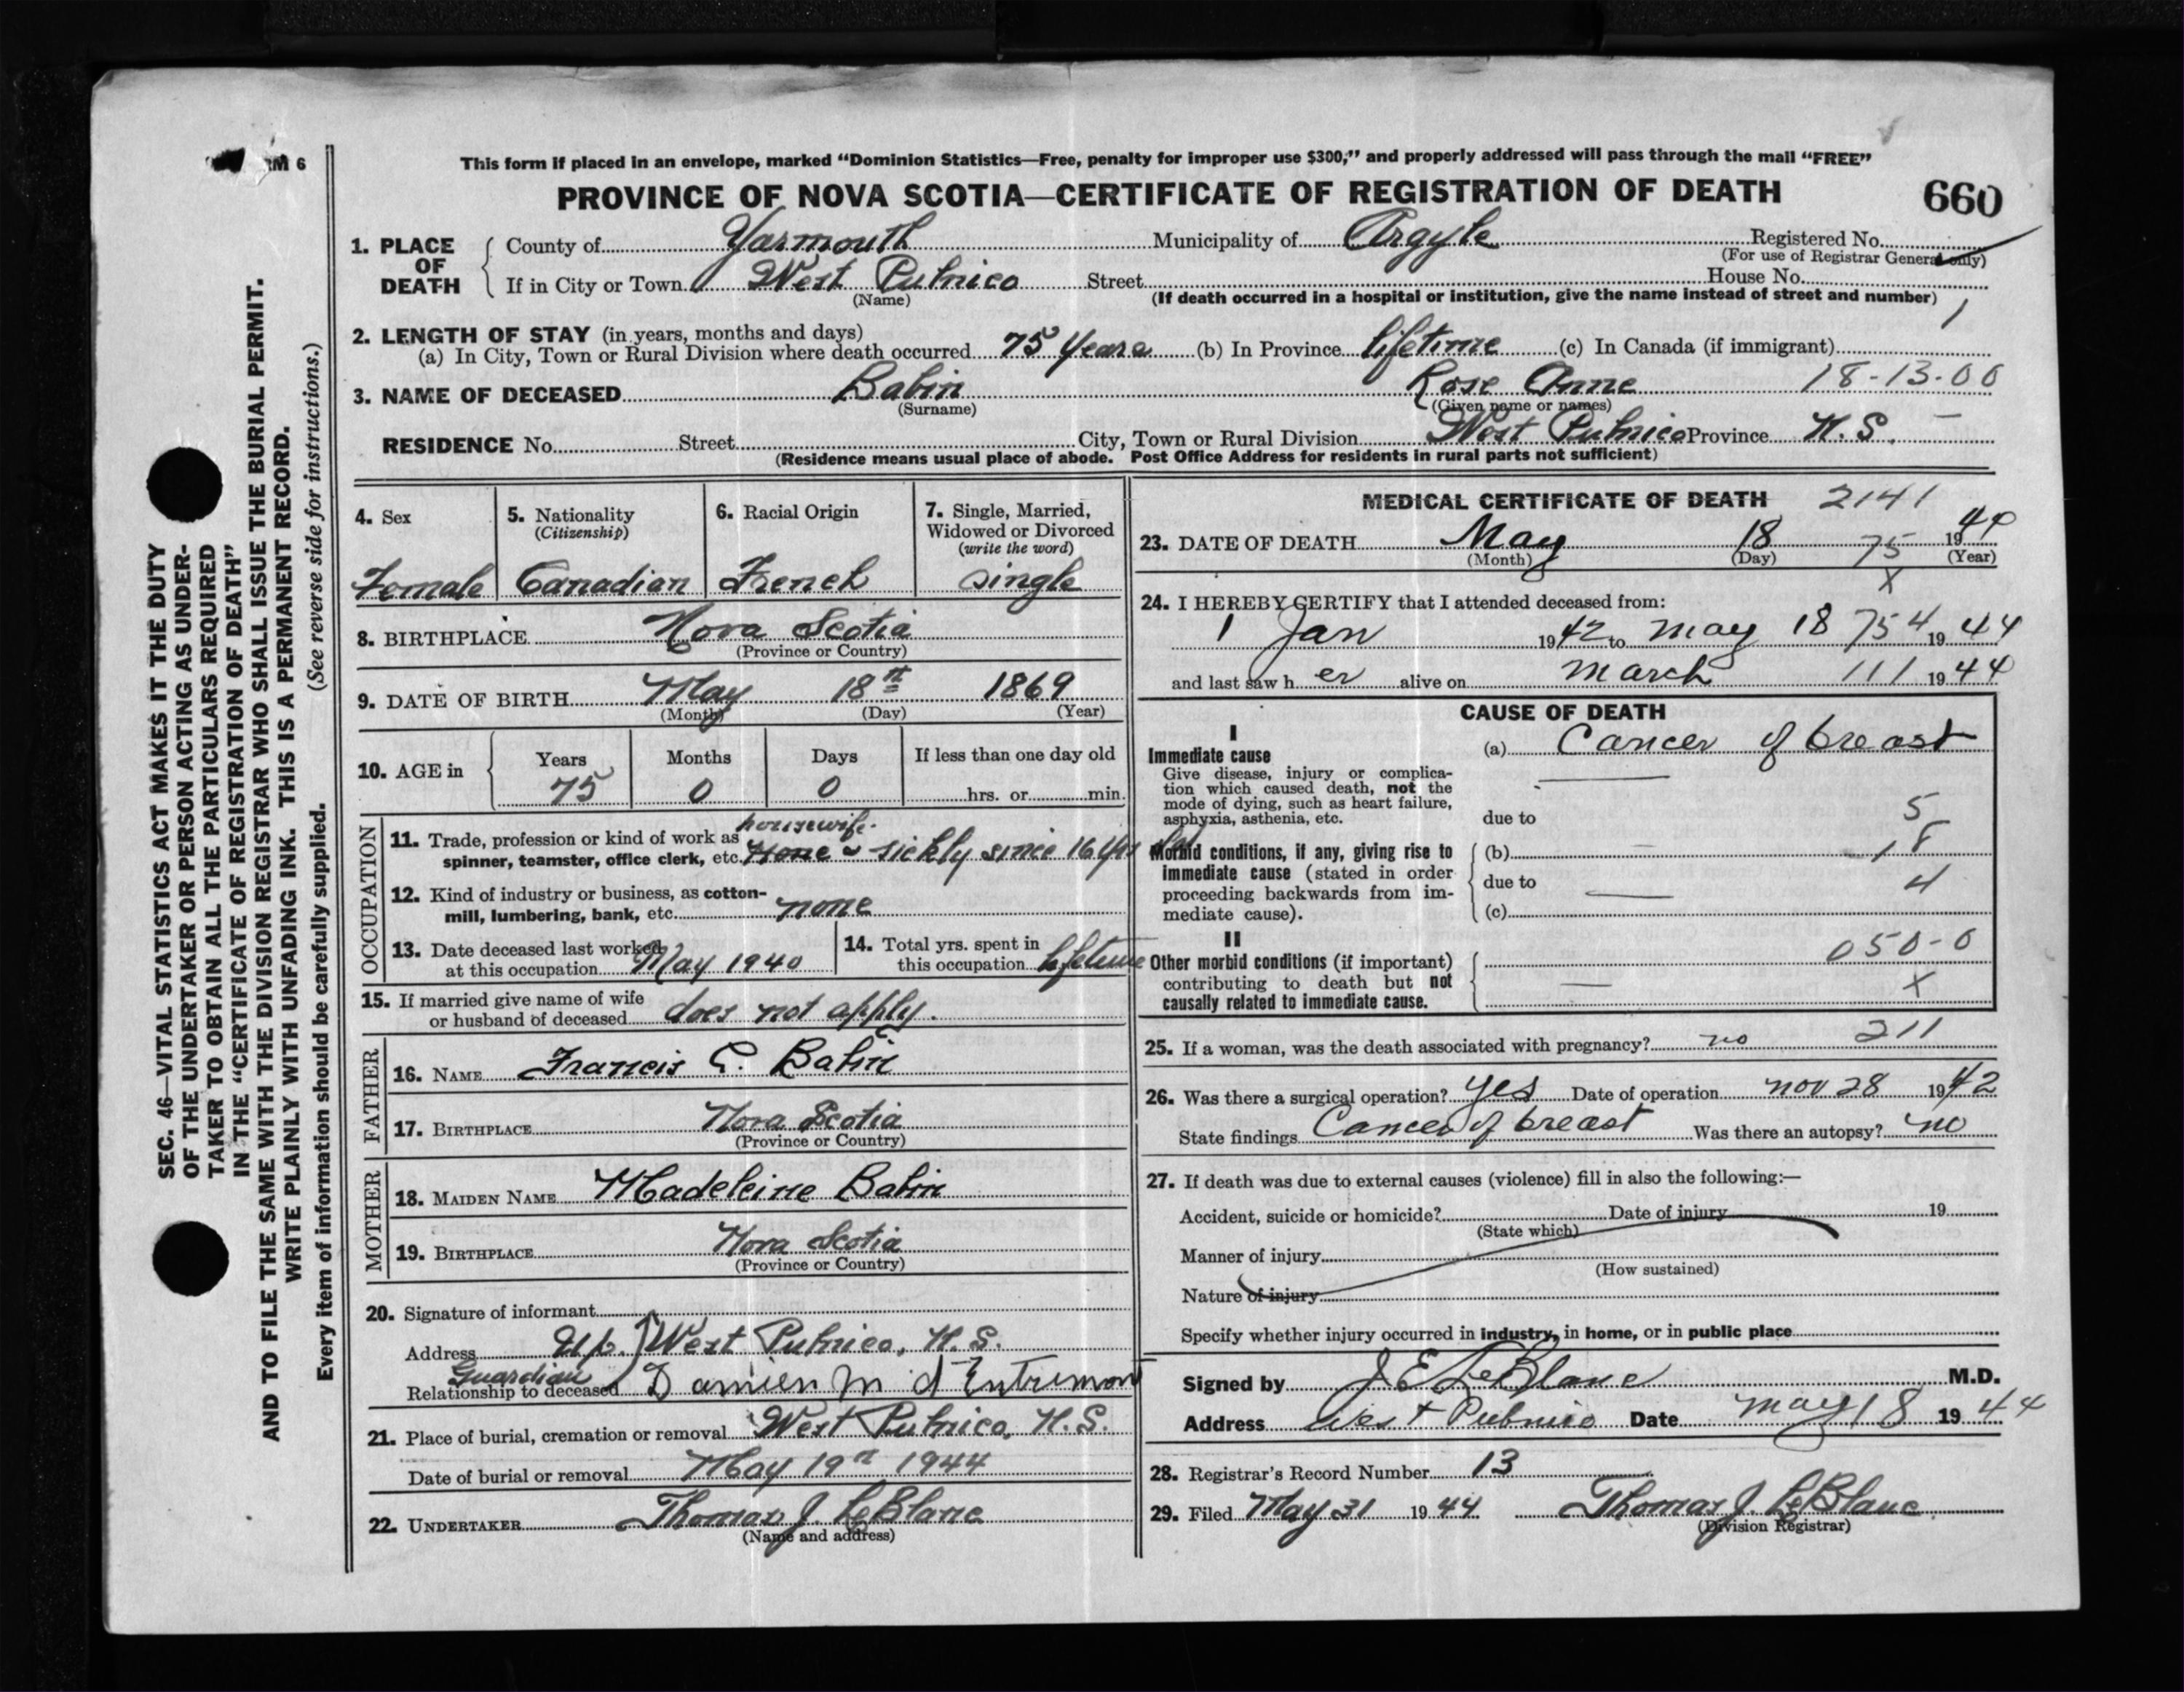 RM 6
This form if placed in an envelope, marked "Dominion Statistics—Free, penalty for improper use $300," and properly addressed will pass through the mail "FREE"
PROVINCE OF NOVA SCOTIA—CERTIFICATE OF REGISTRATION OF DEATH 660
1. PLACE OF DEATH County of Yarmouth Municipality of Argyle Registered No.
(For use of Registrar General only)
If in City or Town West Pubnico Street House No.
(Name) (If death occurred in a hospital or institution, give the name instead of street and number)
1
2. LENGTH OF STAY (in years, months and days)
(a) In City, Town or Rural Division where death occurred 75 years (b) In Province lifetime (c) In Canada (if immigrant)
3. NAME OF DECEASED Babin Rose Anne 18-13-00
(Surname) (Given name or names)
RESIDENCE No. Street City, Town or Rural Division West Pubnico Province N.S.
(Residence means usual place of abode. Post Office Address for residents in rural parts not sufficient)
4. Sex 5. Nationality (Citizenship) 6. Racial Origin 7. Single, Married, Widowed or Divorced (write the word)
Female Canadian French single
8. BIRTHPLACE Nova Scotia
(Province or Country)
9. DATE OF BIRTH May 18th 1869
(Month) (Day) (Year)
10. AGE in Years Months Days If less than one day old
75 0 0 hrs. or min.
OCCUPATION
housewife
11. Trade, profession or kind of work as
spinner, teamster, office clerk, etc. None sickly since 16 yrs old
12. Kind of industry or business, as cotton-
mill, lumbering, bank, etc. none
13. Date deceased last worked
at this occupation May 1940
14. Total yrs. spent in
this occupation lifetime
15. If married give name of wife
or husband of deceased does not apply.
FATHER
16. NAME Francis C. Babin
17. BIRTHPLACE Nova Scotia
(Province or Country)
MOTHER
18. MAIDEN NAME Madeleine Babin
19. BIRTHPLACE Nova Scotia
(Province or Country)
20. Signature of informant
Address West Pubnico, N.S.
Guardian
Relationship to deceased Damien M d'Entremont
21. Place of burial, cremation or removal West Pubnico, N.S.
Date of burial or removal May 19th 1944
22. UNDERTAKER Thomas J. LeBlanc
(Name and address)
MEDICAL CERTIFICATE OF DEATH 2141
23. DATE OF DEATH May 18 75 1944
(Month) (Day) (Year)
X
24. I HEREBY CERTIFY that I attended deceased from:
1 Jan 1942 to may 18 754 1944
and last saw her alive on march 111 1944
CAUSE OF DEATH
I
Immediate cause (a) Cancer of breast
Give disease, injury or complica-
tion which caused death, not the
mode of dying, such as heart failure,
asphyxia, asthenia, etc. due to 5
Morbid conditions, if any, giving rise to (b) 18
immediate cause (stated in order
proceeding backwards from im- due to 4
mediate cause). (c)
II
Other morbid conditions (if important) 050-0
contributing to death but not
causally related to immediate cause. X
25. If a woman, was the death associated with pregnancy? no 211
26. Was there a surgical operation? yes Date of operation nov 28 1942
State findings Cancer of breast Was there an autopsy? no
27. If death was due to external causes (violence) fill in also the following:—
Accident, suicide or homicide? Date of injury 19
(State which)
Manner of injury
(How sustained)
Nature of injury
Specify whether injury occurred in industry, in home, or in public place
Signed by J E LeBlanc M.D.
Address West Pubnico Date may 18 1944
28. Registrar's Record Number 13
29. Filed May 31 1944 Thomas J. LeBlanc
(Division Registrar)
SEC. 46—VITAL STATISTICS ACT MAKES IT THE DUTY
OF THE UNDERTAKER OR PERSON ACTING AS UNDER-
TAKER TO OBTAIN ALL THE PARTICULARS REQUIRED
IN THE "CERTIFICATE OF REGISTRATION OF DEATH"
AND TO FILE THE SAME WITH THE DIVISION REGISTRAR WHO SHALL ISSUE THE BURIAL PERMIT.
WRITE PLAINLY WITH UNFADING INK. THIS IS A PERMANENT RECORD.
Every item of information should be carefully supplied. (See reverse side for instructions.)